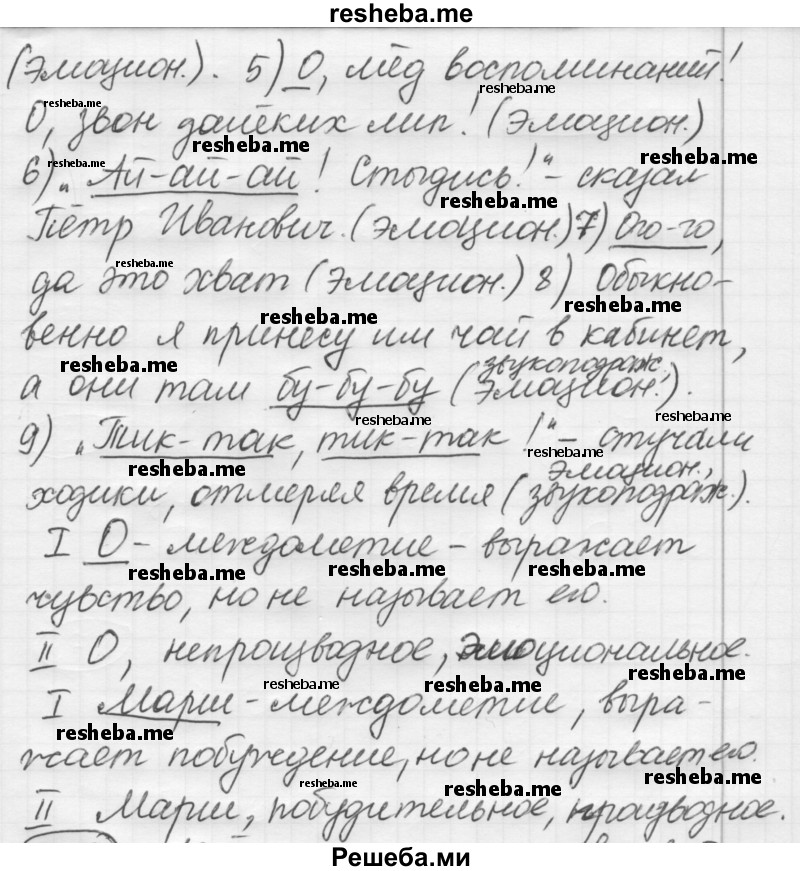 resheba.me
(Эмоцион.). 5) О, мёд воспоминаний!
resheba.me resheba.me
О, звон далёких лип! (Эмоцион.)
resheba.me resheba.me
6) „Ай-ай-ай! Стыдись!“ - сказал
resheba.me resheba.me
Пётр Иванович. (эмоцион.) 7) Ого-го,
resheba.me
да это хват (Эмоцион.) 8) Обыкно-
resheba.me resheba.me
венно я принесу им чай в кабинет,
resheba.me звукоподраж.
а они там бу-бу-бу (Эмоцион.).
resheba.me resheba.me
9) „Тик-так, тик-так!“ - стучали
resheba.me resheba.me эмоцион.,
ходики, отмеряя время (звукоподраж.).
I О - междометие - выражает
resheba.me resheba.me resheba.me
чувство, но не называет его.
II О, непроизводное, эмоциональное.
resheba.me resheba.me resheba.me
I Марш - междометие, выра-
resheba.me resheba.me
жает побуждение, но не называет его.
resheba.me resheba.me resheba.me
II Марш, побудительное, производное.
Решеба.ми